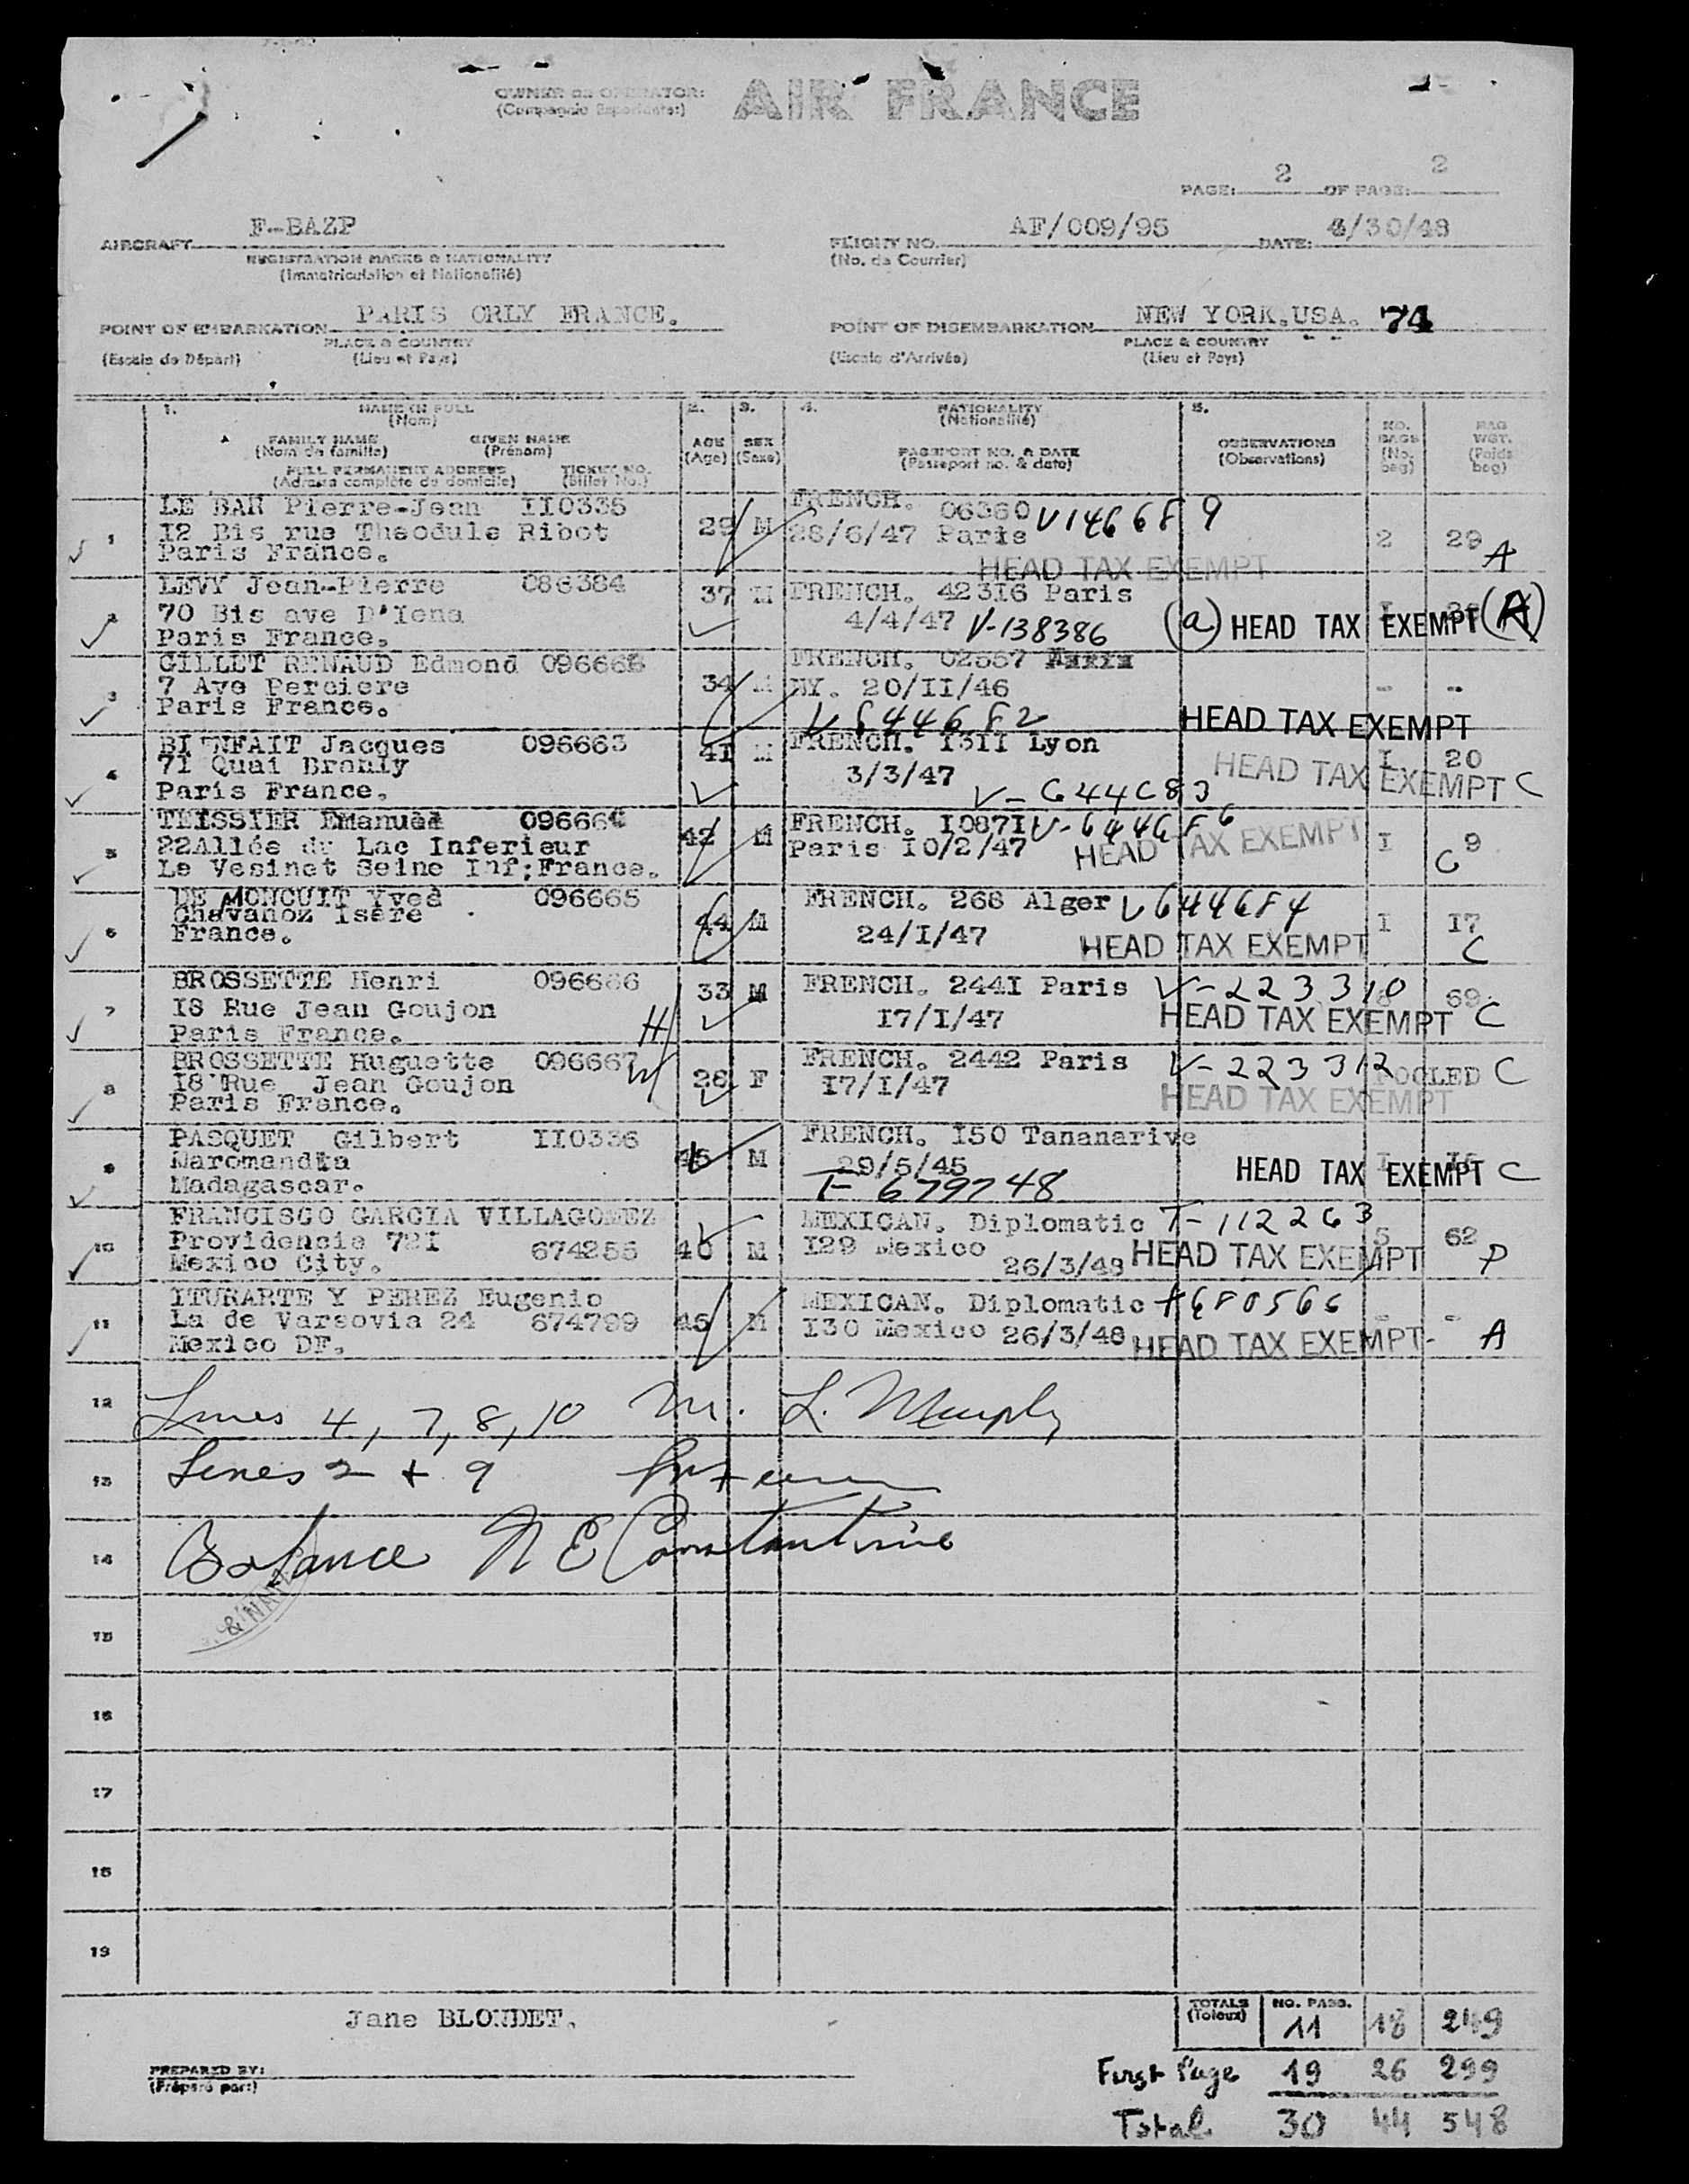 OWNER OR OPERATOR: AIR FRANCE
(Compagnie Exploitante:)
PAGE: 2 OF PAGE: 2
AIRCRAFT F-BAZP FLIGHT NO. AF/009/95 DATE: 4/30/48
REGISTRATION MARKS & NATIONALITY (No. de Courrier)
(Immatriculation et Nationalité)
POINT OF EMBARKATION PARIS ORLY FRANCE. POINT OF DISEMBARKATION NEW YORK.USA. 74
PLACE & COUNTRY PLACE & COUNTRY
(Escale de Départ) (Lieu et Pays) (Escale d'Arrivée) (Lieu et Pays)
1. NAME IN FULL 2. 3. 4. NATIONALITY 5.
(Nom) (Nationalité)
FAMILY NAME GIVEN NAME AGE SEX PASSPORT NO. & DATE OBSERVATIONS NO. BAGS BAG WGT.
(Nom de famille) (Prénom) (Age) (Sexe) (Passeport no. & date) (Observations) (No. bag) (Poids bag)
FULL PERMANENT ADDRESS TICKET NO.
(Adresse complète du domicile) (Billet No.)
LE BAR Pierre-Jean II0335 FRENCH. 06360 V146689
1 I2 Bis rue Theodule Ribot 29 M 28/6/47 Paris 2 29
Paris France. HEAD TAX EXEMPT A
LEVY Jean-Pierre 086384 37 M FRENCH. 423I6 Paris
2 70 Bis ave D'Iena 4/4/47 V-138386 (a) HEAD TAX EXEMPT (A)
Paris France.
GILLET RENAUD Edmond FRENCH. 02557
3 7 Ave Perciere 34 M NY. 20/II/46 - -
Paris France. HEAD TAX EXEMPT
Jacques 096663 41 M FRENCH. I3II Lyon
4 71 Quai Branly 3/3/47 I 20
Paris France. HEAD TAX EXEMPT C
TEISSIER 42 M FRENCH. I087I
5 22Allée du Lac Inferieur Paris I0/2/47 HEAD TAX EXEMPT I 9
Le Vesinet Seine Inf;France. C
DE MONCUIT Yves 096665 FRENCH. 268 Alger V644684
6 Chavanoz Isere 44 M 24/I/47 I I7
France. HEAD TAX EXEMPT C
BROSSETTE Henri 096666 33 M FRENCH. 244I Paris V-223310
7 I8 Rue Jean Goujon I7/I/47 HEAD TAX EXEMPT 69 C
Paris France. H
BROSSETTE Huguette 096667 W FRENCH. 2442 Paris V-223312
8 I8 Rue Jean Goujon 28 F I7/I/47 POOLED C
Paris France. HEAD TAX EXEMPT
PASQUET Gilbert II0336 FRENCH. I50 Tananarive
9 Maromandia 45 M 29/5/45 HEAD TAX EXEMPT C
Madagascar. T- 679748
FRANCISCO GARCIA VILLAGOMEZ MEXICAN. Diplomatic T-112263
10 Providencia 72I 674255 40 M I29 Mexico 5 62
Mexico City. 26/3/48 HEAD TAX EXEMPT P
ITURARTE Y PEREZ Eugenio MEXICAN. Diplomatic
11 La de Varsovia 24 674799 45 M I30 Mexico 26/3/48 - -
Mexico DF. HEAD TAX EXEMPT- A
12 Lines 4, 7, 8, 10 M. L. Murphy
13 Lines 2 + 9
14 Balance N E Constantine
& NAT
15
16
17
18
19
Jane BLONDET.
TOTALS (Totaux) NO. PASS. 11 18 249
PREPARED BY: First Page 19 26 299
(Préparé par:) Total 30 44 548